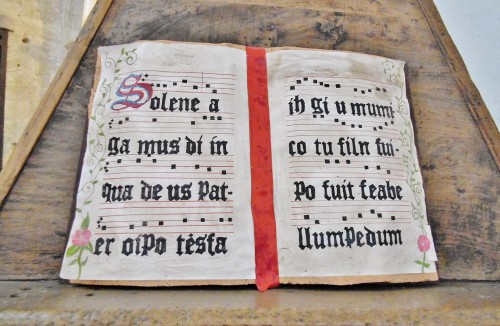 Solene a
ga mus di in
qua de us Pat-
er oiPo tèsfa
ih gi u mumi
co tu filn fui-
Po fuit feabe
llumPedum